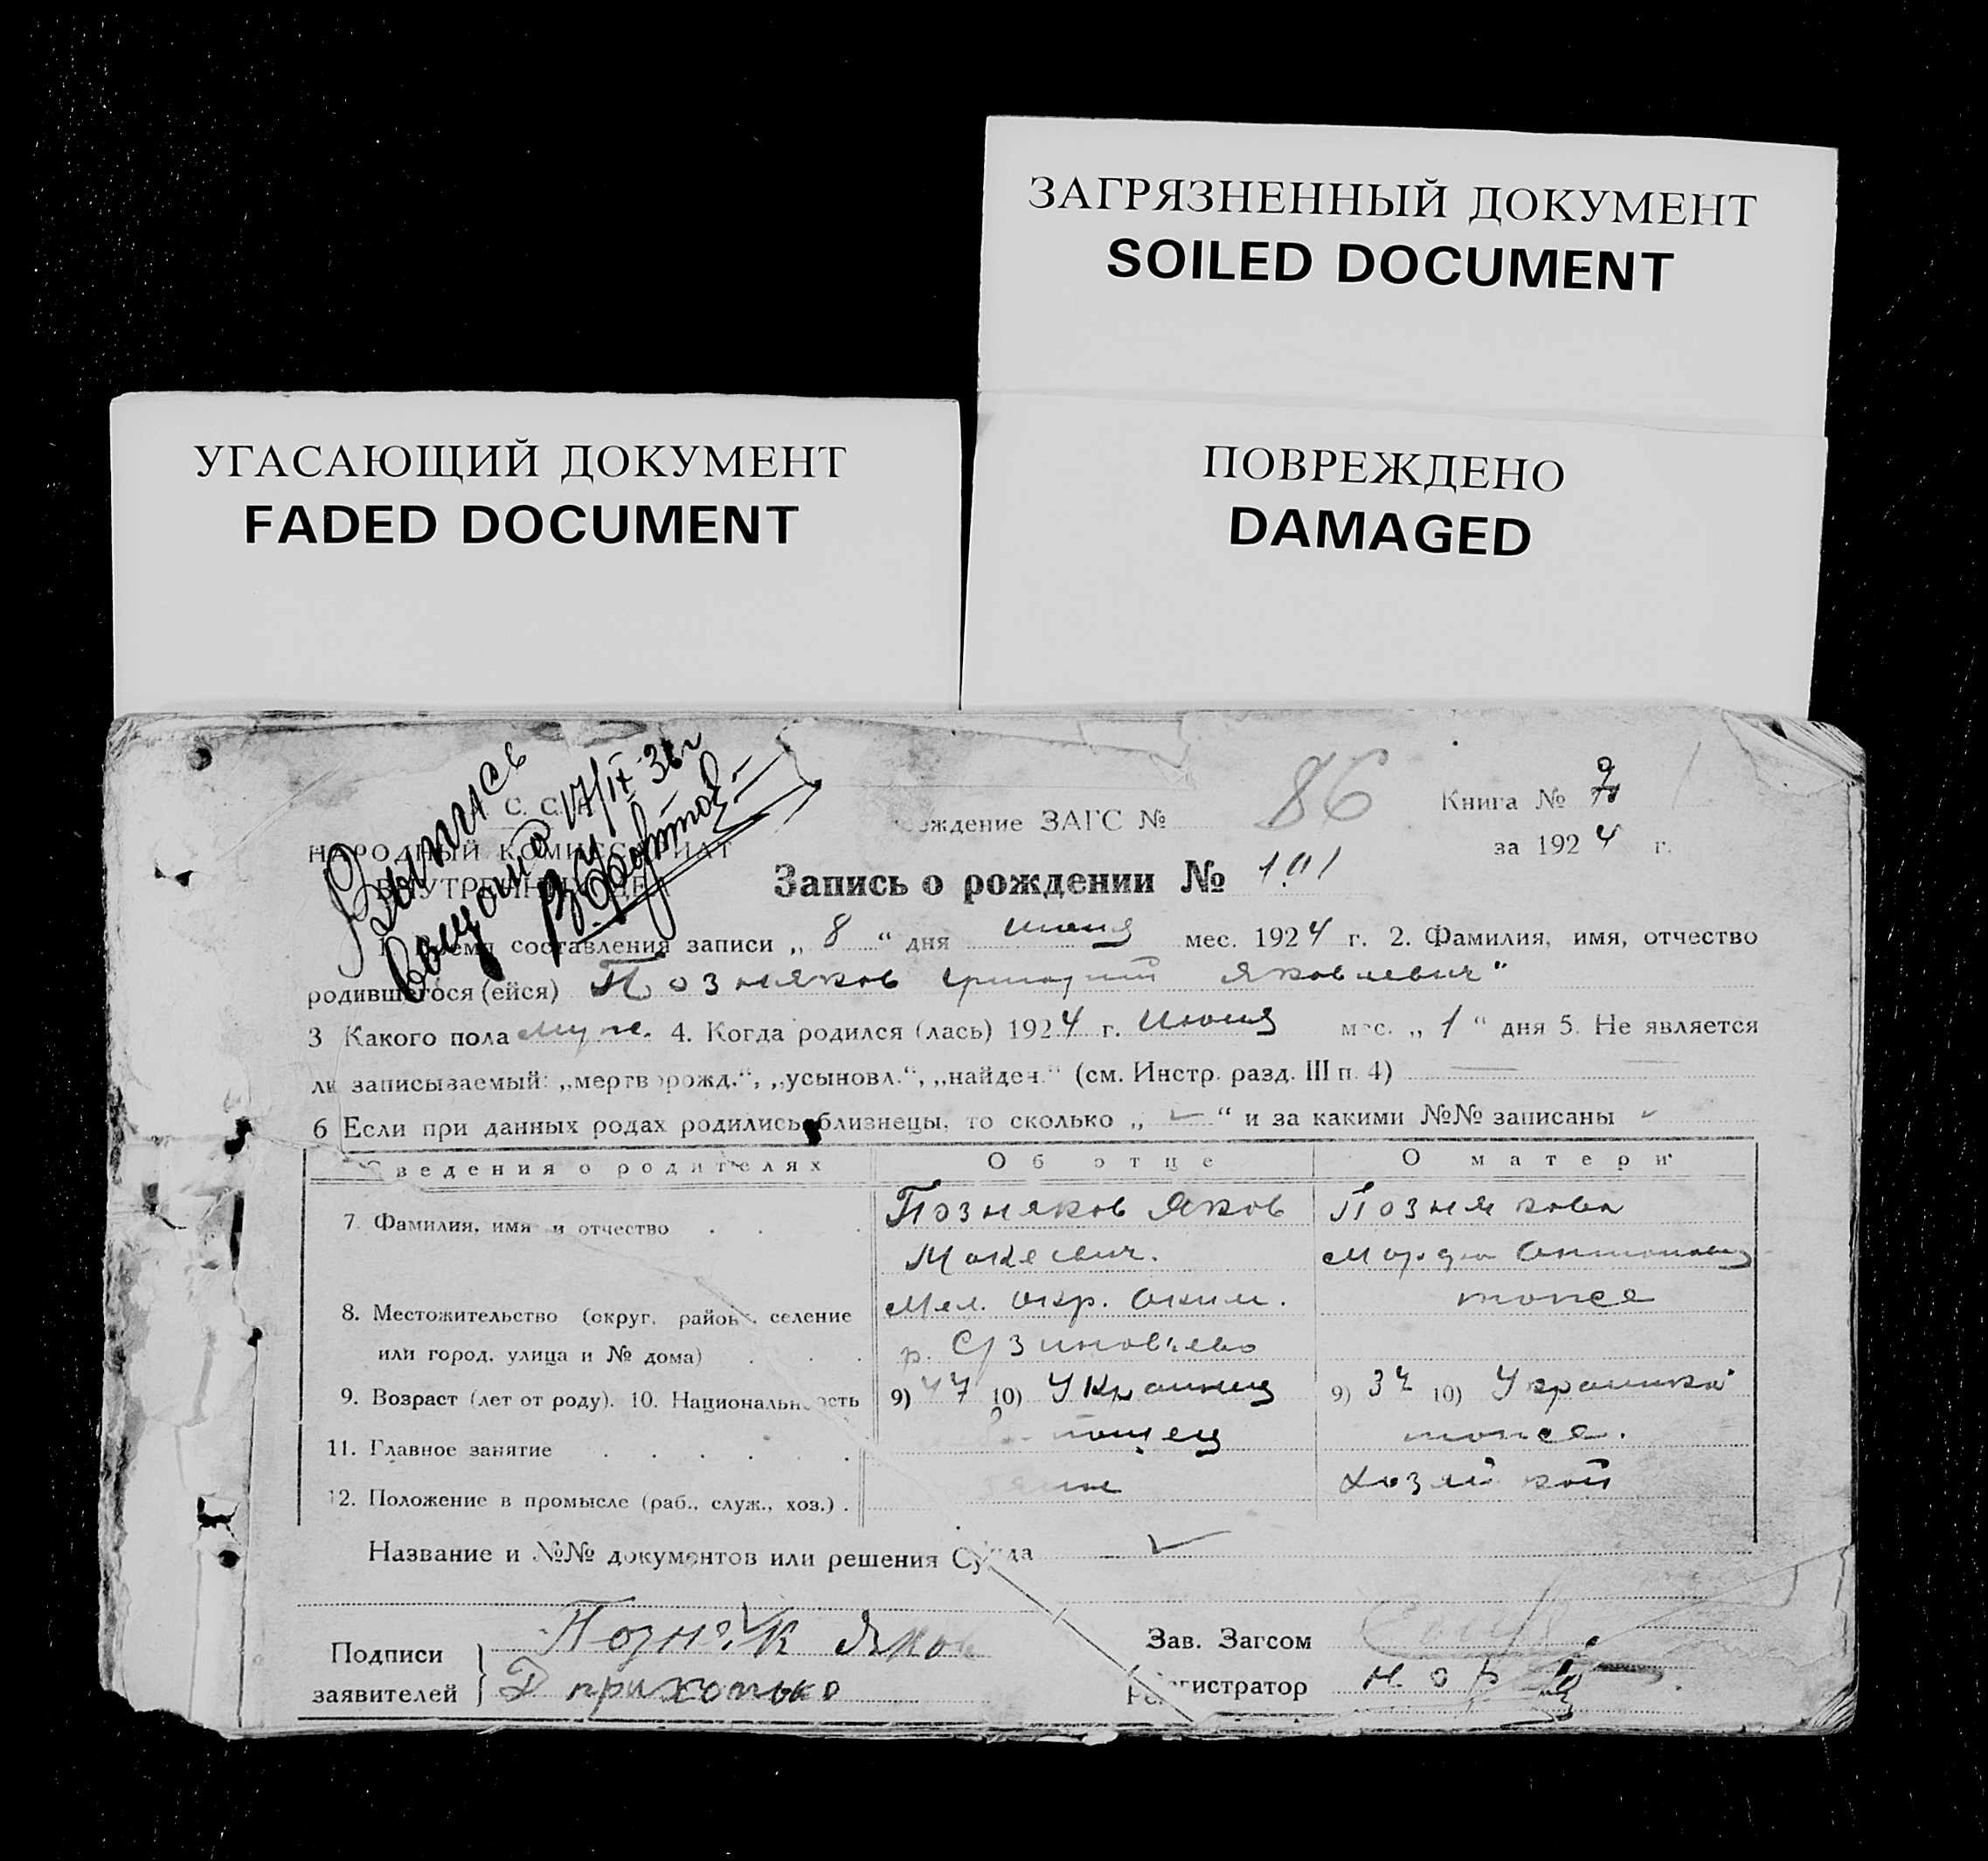 ЗАГРЯЗНЕННЫЙ ДОКУМЕНТ
SOILED DOCUMENT
УГАСАЮЩИЙ ДОКУМЕНТ
FADED DOCUMENT
ПОВРЕЖДЕНО
DAMAGED
Выпись
выдана 17/IX-36г
С. С.
НАРОДНЫЙ КОМИССАРИАТ
ВНУТРЕНН
ждение ЗАГС №
86
Книга №
за 1924 г.
Запись о рождении № 101
1. Время составления записи „ 8 “ дня июня мес. 1924 г. 2. Фамилия, имя, отчество
родившегося (ейся) Позняков Григорий Яковлевич
3 Какого пола муж. 4. Когда родился (лась) 1924 г. Июня мес. „ 1 “ дня 5. Не является
ли записываемый: „мертворожд.“, „усыновл.“, „найден.“ (см. Инстр. разд. III п. 4) —
6 Если при данных родах родились близнецы, то сколько „ “ и за какими №№ записаны
Сведения о родителях Об отце О матери
7. Фамилия, имя и отчество Позняков Яков Познякова
Мокеевич. Антоновна
8. Местожительство (округ, район, селение Мел. окр. Аким. тоже
или город, улица и № дома) р. Зиновьево
9. Возраст (лет от роду). 10. Национальность 9) 47 10) Украинец 9) 37 10) Украинка
11. Главное занятие тоже.
12. Положение в промысле (раб., служ., хоз.) . хозяйкой
Название и №№ документов или решения Суда
Подписи
заявителей
Позняк Яков
Д Прихотько
Зав. Загсом
Регистратор